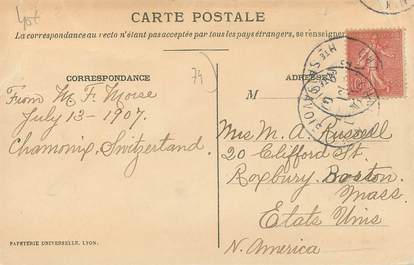 CARTE POSTALE
La correspondance au recto n'étant pas acceptée par tous les pays étrangers, se renseigner
CORRESPONDANCE
74
ADRESSE
M
From M. F. Morse
July 13 - 1907.
Chamonix, Switzerland.
Mrs M. A. Russell
20 Clifford St.
Roxbury. Boston.
Mass.
Etats Unis
N. America
PAPETERIE UNIVERSELLE, LYON.